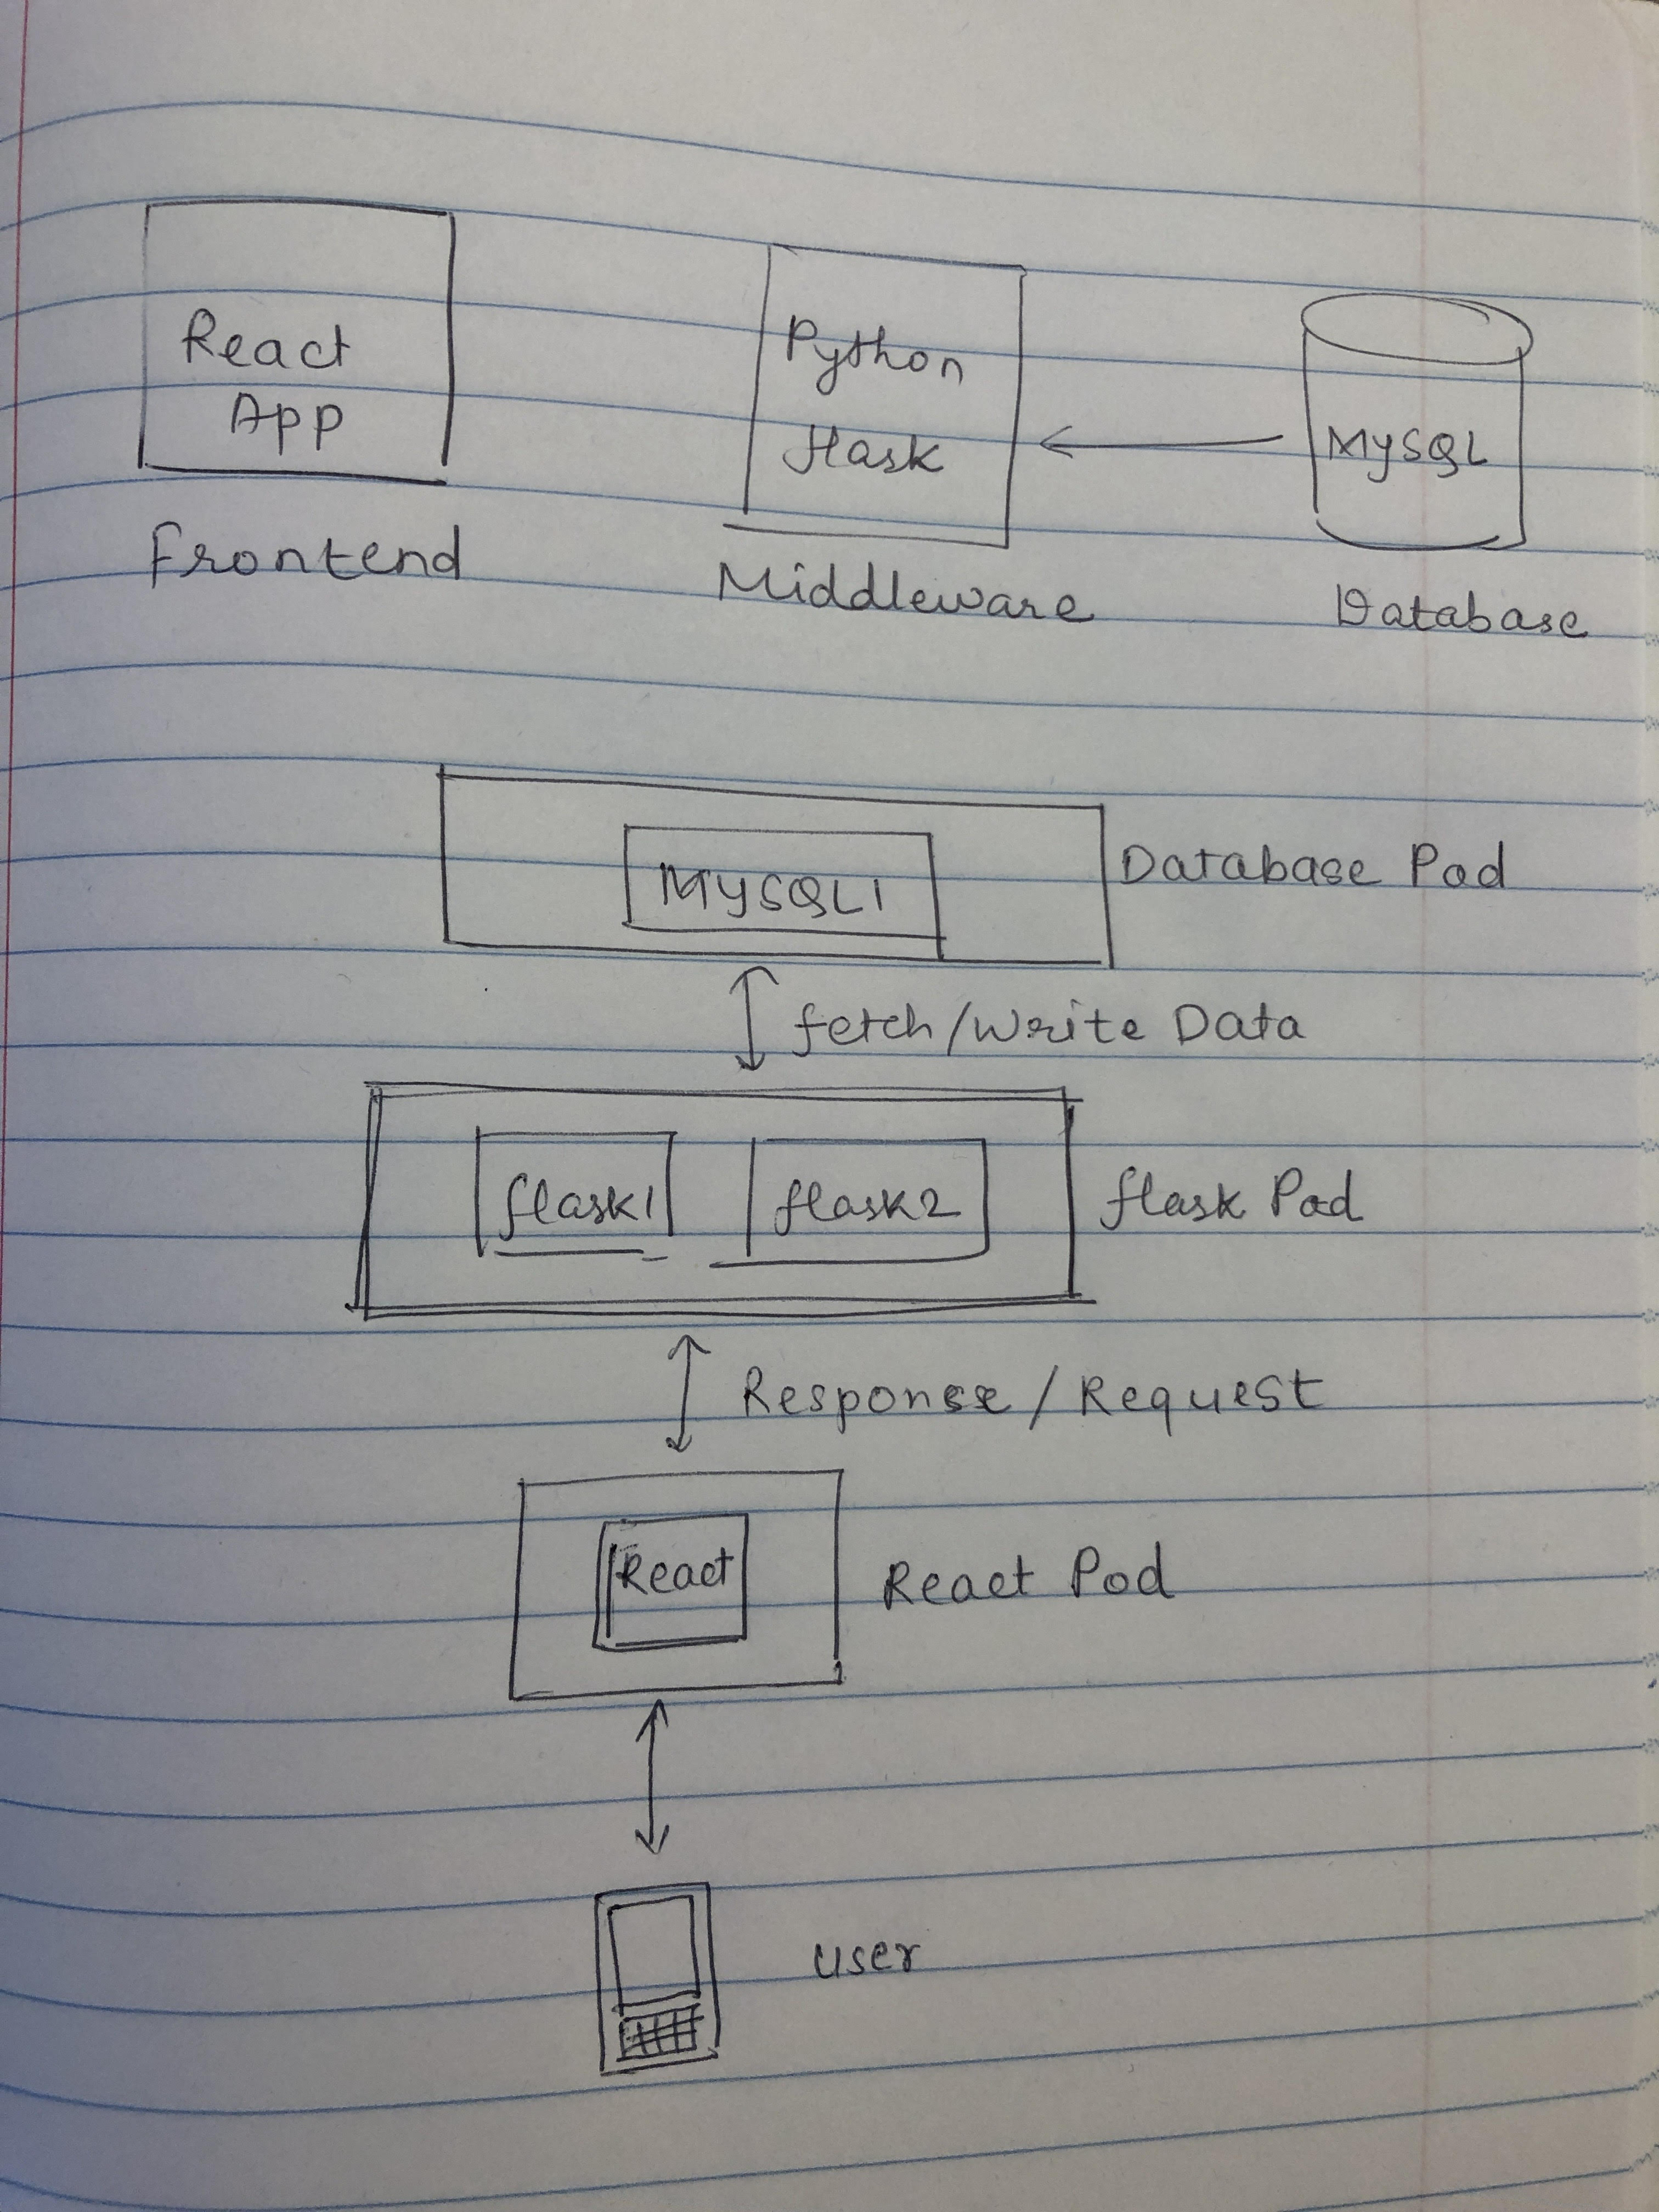 React
App
Python
Flask
MySQL
Frontend
Middleware
Database
MYSQL1
Database Pod
fetch/Write Data
flask1
flask2
flask Pod
Response/Request
React
React Pod
user